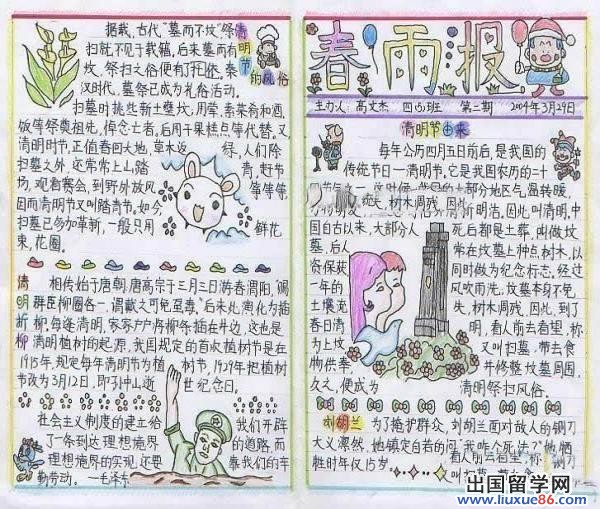 据载,古代"墓而不坟"祭
扫就不见于载籍,后来墓而有
坟,祭扫之俗便有了托俗,秦
汉时代,墓祭已成为礼俗活动。
清明节的风俗
扫墓时挑些新土壅坟,用荤、素菜肴和酒,
饭等祭奠祖先,悼念亡者,后用于果糕点等代替。又
清明时节,正值春回大地,草木返绿,人们除
扫墓之外,还常常上山踏青,赶节
场,观看赛会,到野外放风筝等,
因而清明节又叫踏青节。如今,
扫墓已多加革新,一般只用鲜花
束,花圈。
清明插柳
相传始于唐朝,唐高宗于三月三日游春渭阳,"阑
群臣柳圈各一,谓戴之可免虿毒。"后来此演化为插
柳,每逢清明,家家户户将柳条插在井边,这也是
清明植树的起源,我国规定的首次植树节是在
1915年,规定每年清明节为植树节,1929年把植树
节改为3月12日,即孙中山逝世纪念日。
社会主义制度的建立给我们开辟
了一条到达理想境界的道路,而
理想境界的实现还要靠我们的辛
勤劳动。 —毛泽东
春雨报
主办人:高文杰 四(5)班 第二期 2004年3月29日
清明节由来
每年公历四月五日前后,是我国的
传统节日—清明节,它是我国农历的二十
部分地区气温转暖,
树木凋残,因此
新明洁。因此叫清明,中
国自古以来,大部分人死后都是土葬,叫做坟
墓,后人常在坟墓上种点树木,以
资保获同时做为纪念标志。经过
一年的风吹雨洗,坟墓本身不免
土壤充失,树木凋残,因此,到了
春日清明,看人前去看望,称
为上坟又叫扫墓,带去食
物供奉,并修整坟墓周围,
久之,便成为清明祭扫风俗。
刘胡兰
为了掩护群众,刘胡兰面对敌人的铡刀
大义凛然,她镇定自若的问"我咋个死法?"她牺
牲时年仅15岁。
出国留学网
www.liuxue86.com